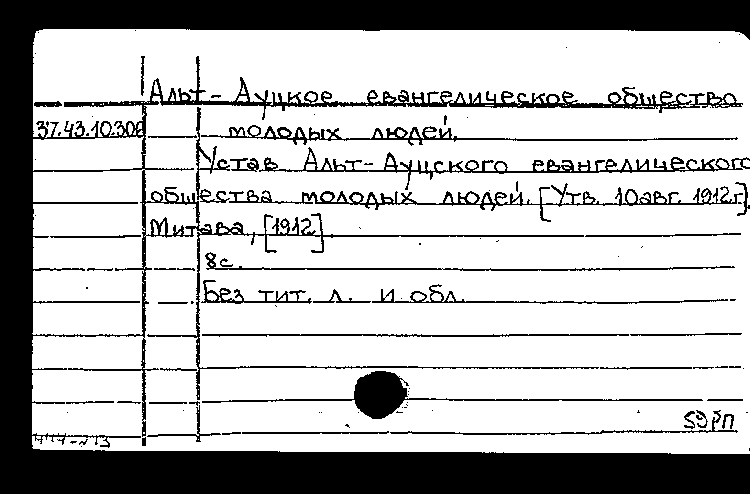 Альт-Ауцкое евангелическое общество
37.43.10.308 молодых людей.
Устав Альт-Ауцского евангелического
общества молодых людей. [Утв. 10 авг. 1912 г.]
Митава, [1912].
8 с.
Без тит. л. и обл.